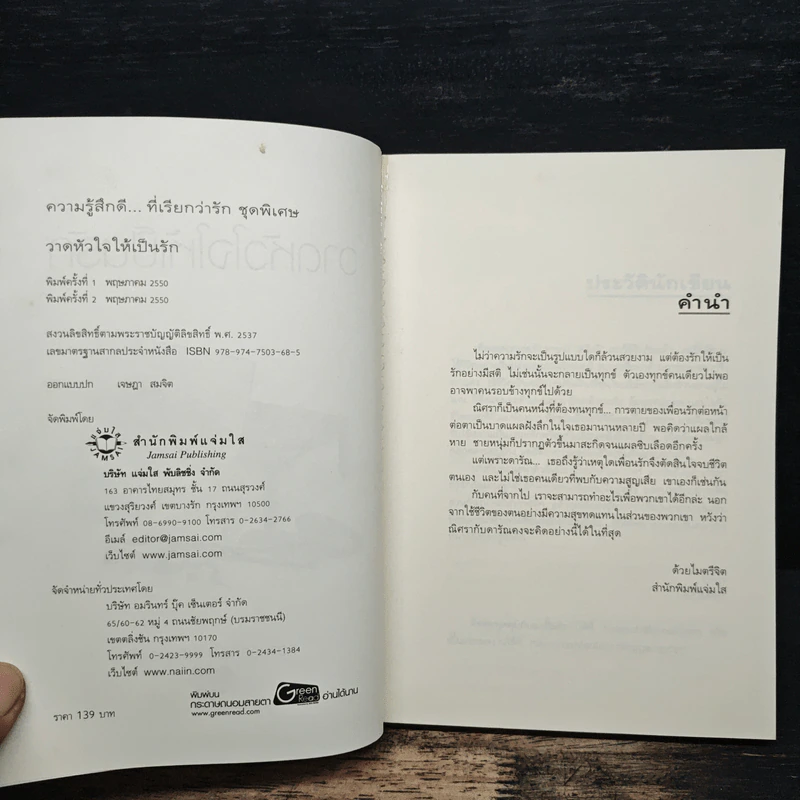 ความรู้สึกดี... ที่เรียกว่ารัก ชุดพิเศษ
วาดหัวใจให้เป็นรัก
พิมพ์ครั้งที่ 1 พฤษภาคม 2550
พิมพ์ครั้งที่ 2 พฤษภาคม 2550
สงวนลิขสิทธิ์ตามพระราชบัญญัติลิขสิทธิ์ พ.ศ. 2537
เลขมาตรฐานสากลประจำหนังสือ ISBN 978-974-7503-68-5
ออกแบบปก เจษฎา สมจิต
จัดพิมพ์โดย
แจ่มใส
JAMSAI
สำนักพิมพ์แจ่มใส
Jamsai Publishing
บริษัท แจ่มใส พับลิชชิ่ง จำกัด
163 อาคารไทยสมุทร ชั้น 17 ถนนสุรวงศ์
แขวงสุริยวงศ์ เขตบางรัก กรุงเทพฯ 10500
โทรศัพท์ 08-6990-9100 โทรสาร 0-2634-2766
อีเมล์ editor@jamsai.com
เว็บไซต์ www.jamsai.com
จัดจำหน่ายทั่วประเทศโดย
บริษัท อมรินทร์ บุ๊ค เซ็นเตอร์ จำกัด
65/60-62 หมู่ 4 ถนนชัยพฤกษ์ (บรมราชชนนี)
เขตตลิ่งชัน กรุงเทพฯ 10170
โทรศัพท์ 0-2423-9999 โทรสาร 0-2434-1384
เว็บไซต์ www.naiin.com
พิมพ์บน
กระดาษถนอมสายตา Green Read อ่านได้นาน
www.greenread.com
ราคา 139 บาท
คำนำ
ไม่ว่าความรักจะเป็นรูปแบบใดก็ล้วนสวยงาม แต่ต้องรักให้เป็น
รักอย่างมีสติ ไม่เช่นนั้นจะกลายเป็นทุกข์ ตัวเองทุกข์คนเดียวไม่พอ
อาจพาคนรอบข้างทุกข์ไปด้วย
ณิศราก็เป็นคนหนึ่งที่ต้องทนทุกข์... การตายของเพื่อนรักต่อหน้า
ต่อตาเป็นบาดแผลฝังลึกในใจเธอมานานหลายปี พอคิดว่าแผลใกล้
หาย ชายหนุ่มก็ปรากฏตัวขึ้นมาสะกิดจนแผลซิบเลือดอีกครั้ง
แต่เพราะดารัณ... เธอถึงรู้ว่าเหตุใดเพื่อนรักจึงตัดสินใจจบชีวิต
ตนเอง และไม่ใช่เธอคนเดียวที่พบกับความสูญเสีย เขาเองก็เช่นกัน
กับคนที่จากไป เราจะสามารถทำอะไรเพื่อพวกเขาได้อีกล่ะ นอก
จากใช้ชีวิตของตนอย่างมีความสุขทดแทนในส่วนของพวกเขา หวังว่า
ณิศรากับดารัณคงจะคิดอย่างนี้ได้ในที่สุด
ด้วยไมตรีจิต
สำนักพิมพ์แจ่มใส